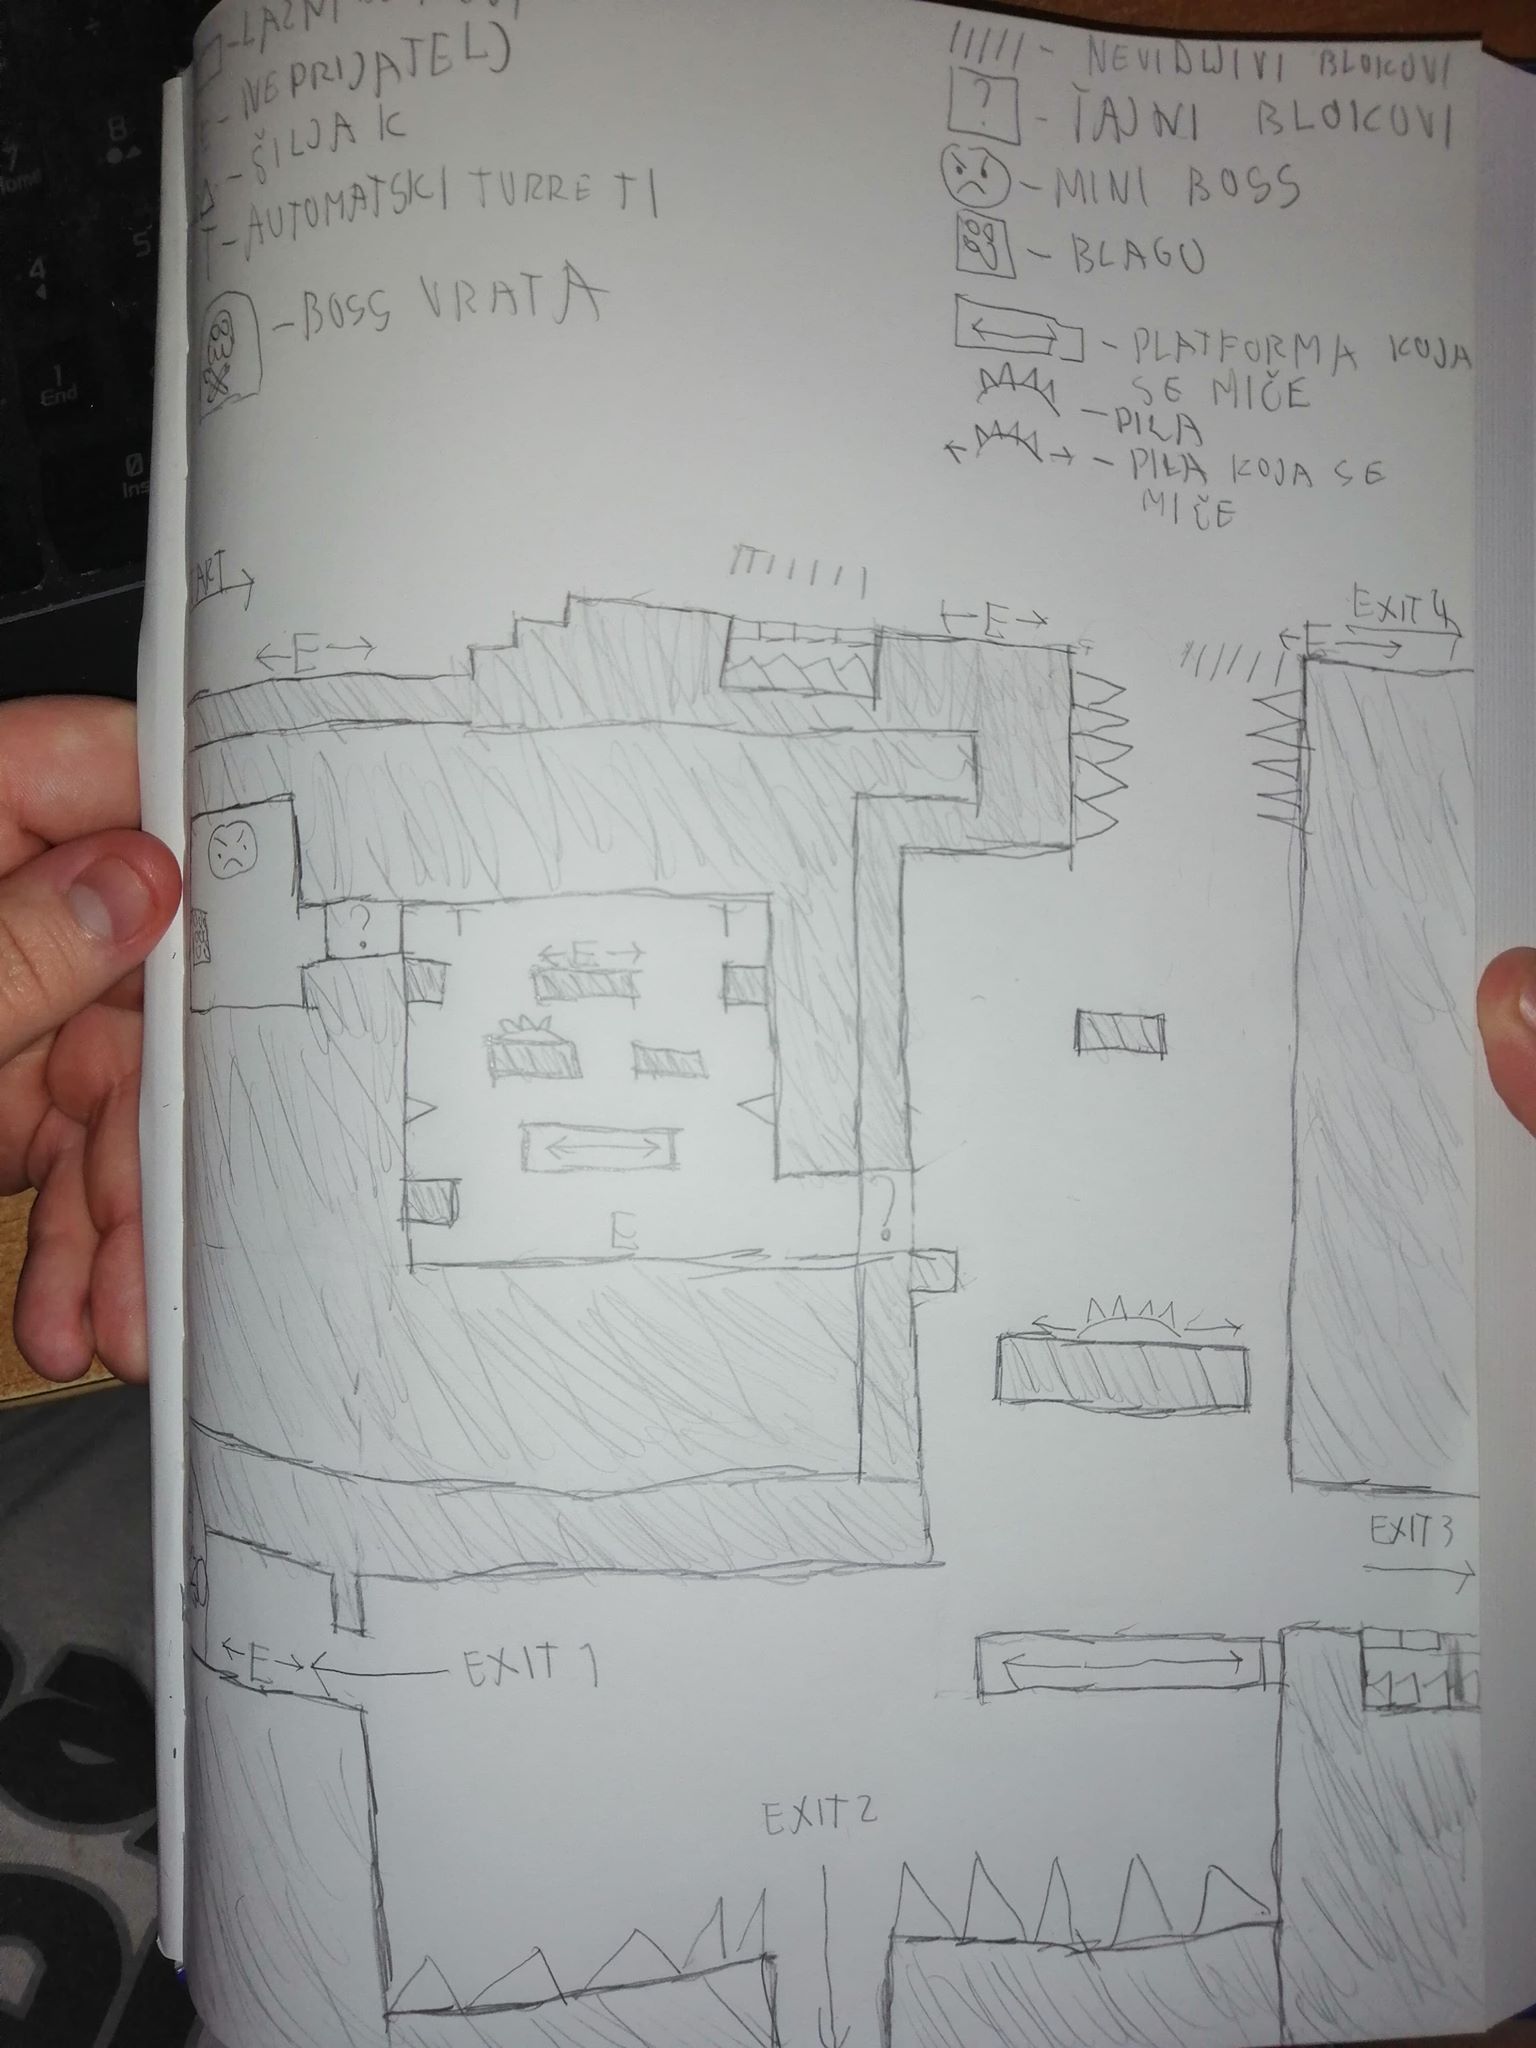 NEPRIJATELJ
- ŠILJAK
T - AUTOMATSKI TURRETI
- BOSS VRATA
///// - NEVIDLJIVI BLOKOVI
? - TAJNI BLOKOVI
- MINI BOSS
- BLAGO
- PLATFORMA KOJA
SE MIČE
- PILA
- PILA KOJA SE
MIČE
ART
E
E
E
EXIT 4
?
T
T
E
E
?
EXIT 3
E
EXIT 1
EXIT 2
8
7
Home
5
4
1
End
0
Ins